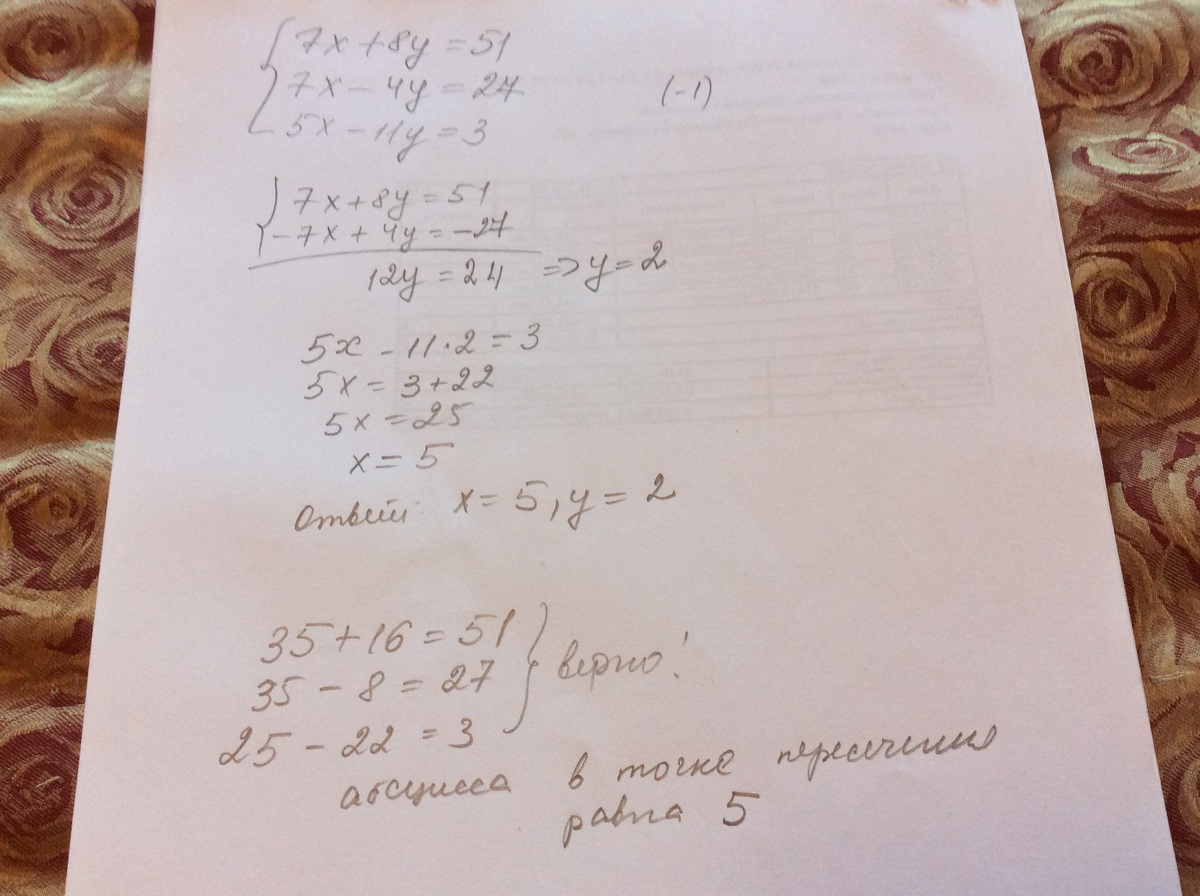 7x + 8y = 51
7x - 4y = 27 (-1)
5x - 11y = 3
7x + 8y = 51
-7x + 4y = -27
12y = 24 => y = 2
5x - 11·2 = 3
5x = 3 + 22
5x = 25
x = 5
Ответ: x = 5, y = 2
35 + 16 = 51
35 - 8 = 27 верно!
25 - 22 = 3
абсцисса в точке пересечения
равна 5